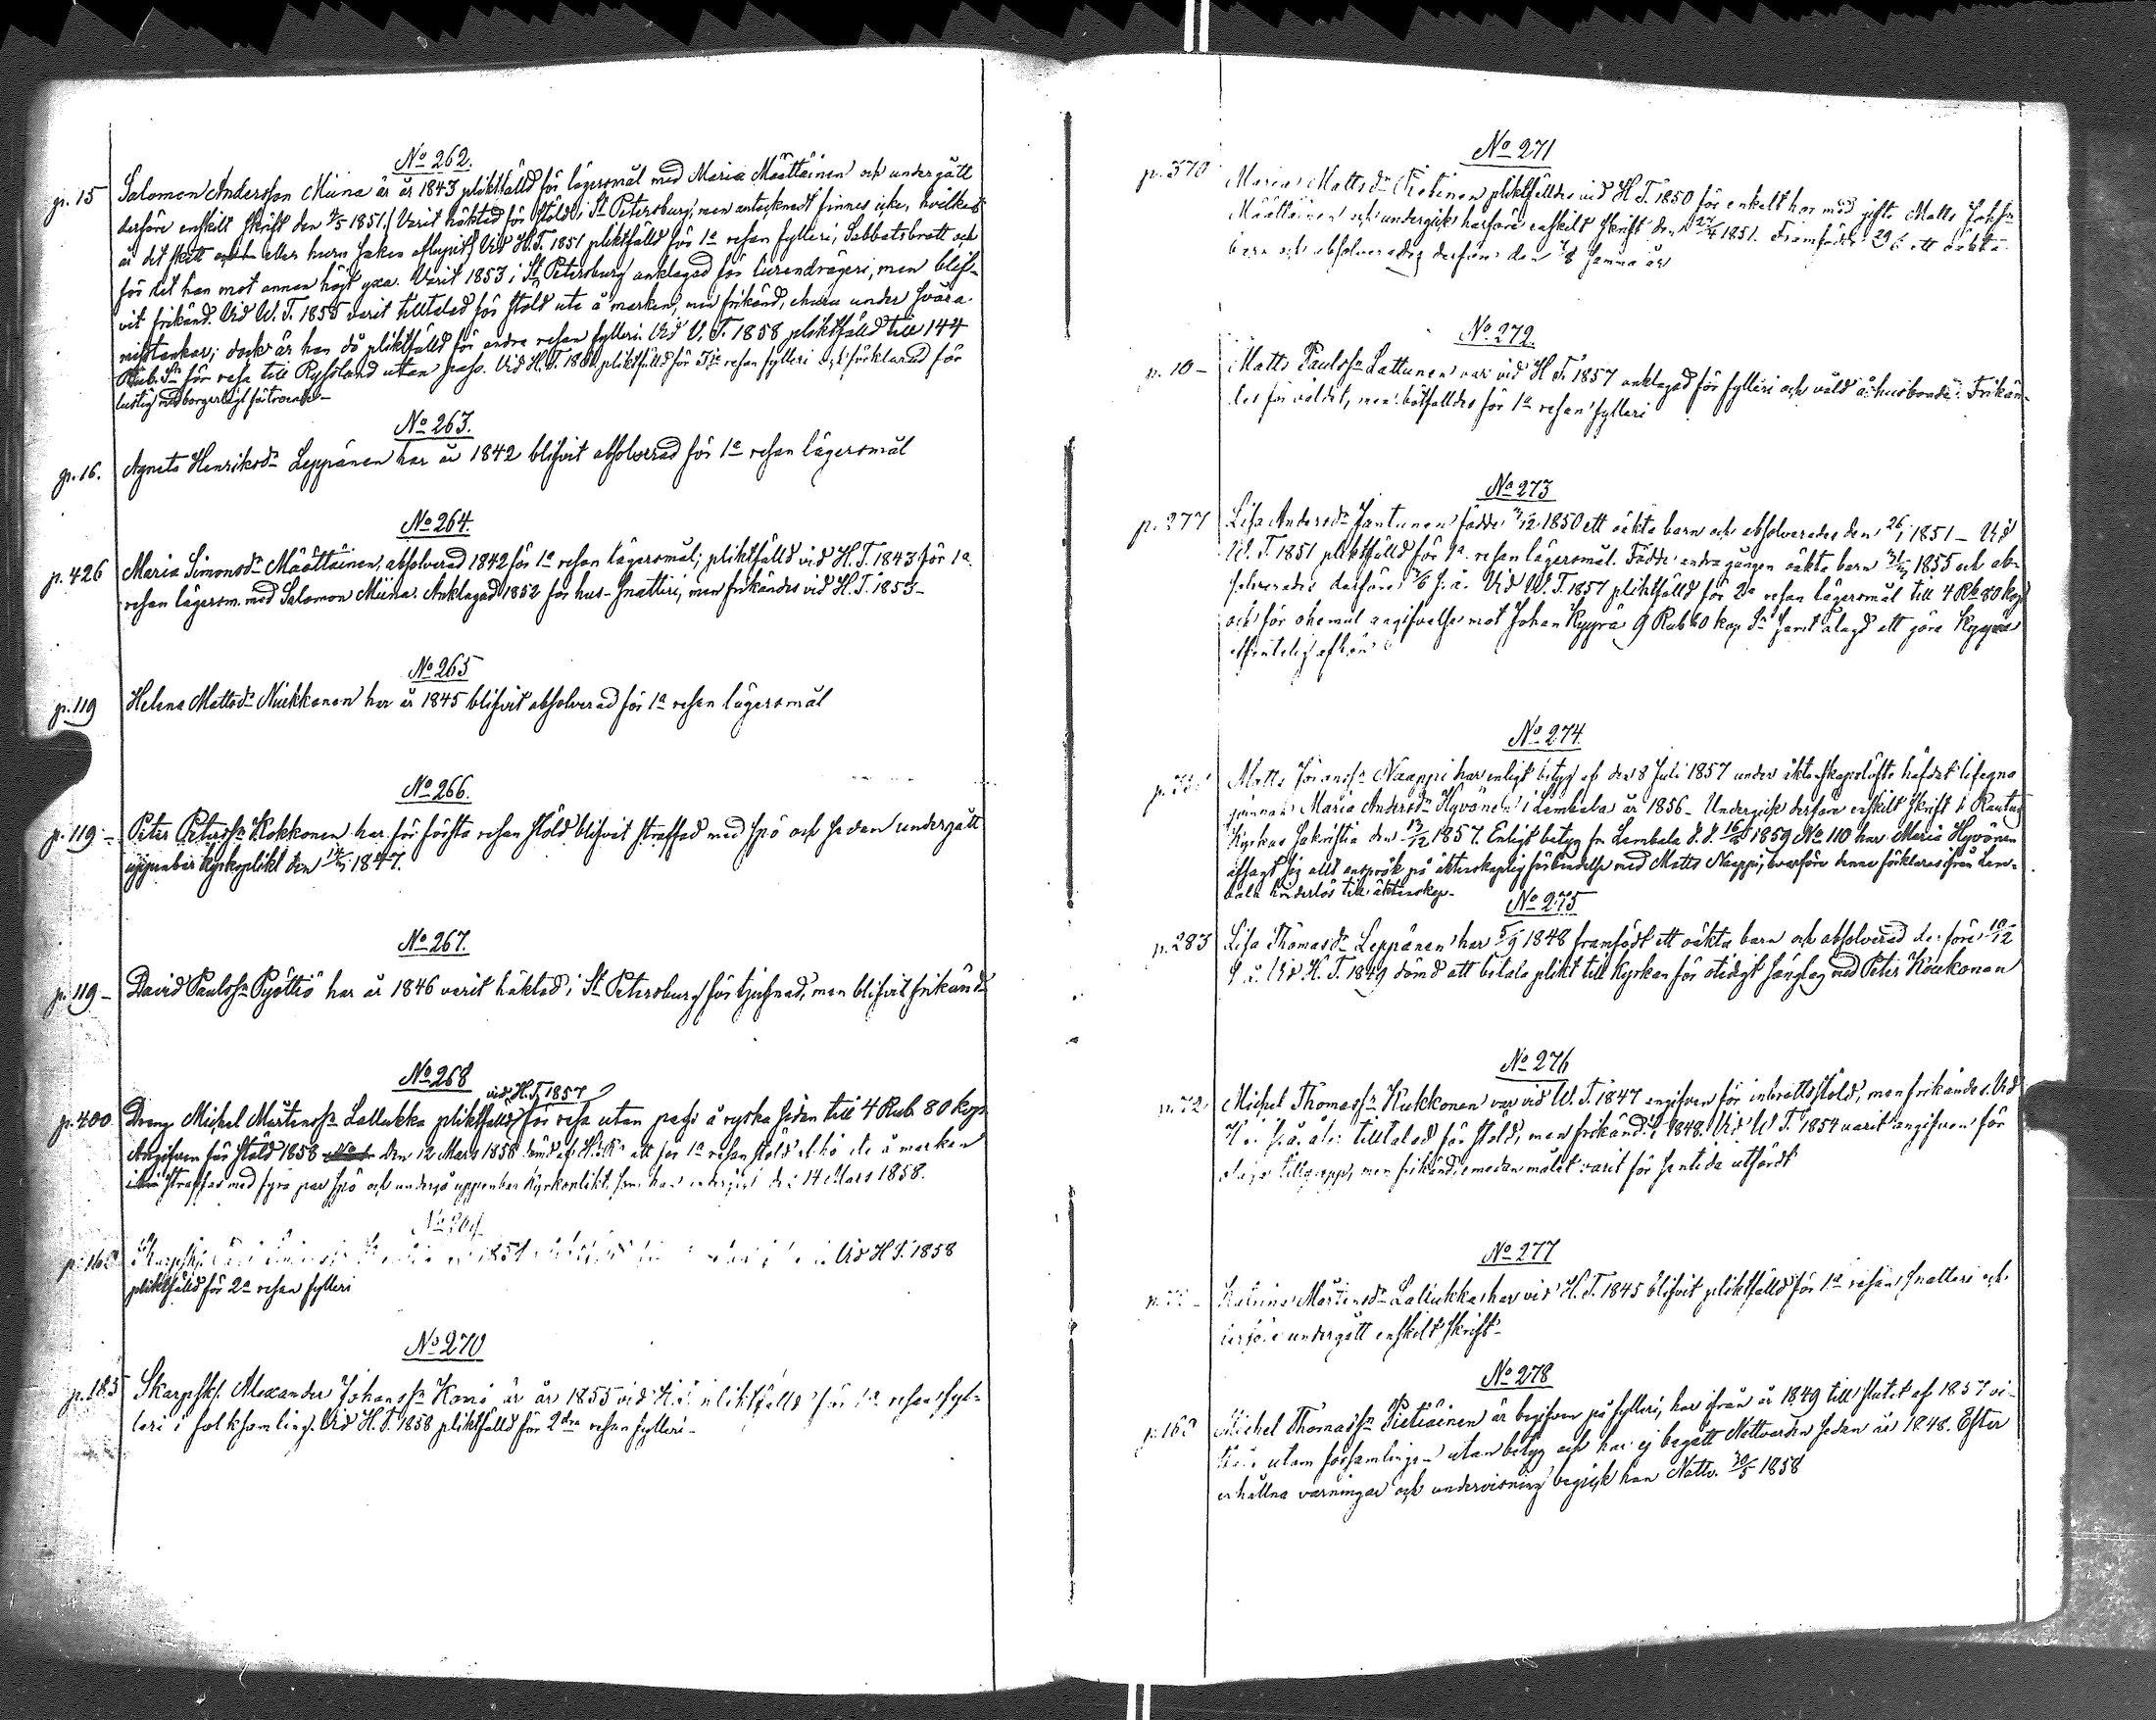 No 262.
p. 15 Salomon Andersson Miina är år 1843 pliktfälld för lägersmål med Maria Määttäinen och undergått
derföre enskilt skrift den 4/5 1851. Varit häktad för stöld i St Petersburg, men antecknadt finnes icke, hvilket
år det skett eller huru saken aflupit. Vid H.T. 1851 pliktfälld för 1a resan fylleri, Sabbatsbrott och
för det han mot annan höjt yxa. Varit 1853 i St Petersburg anklagad för lurendrägeri, men blif-
vit frikänd. Vid W.T. 1855 varit tilltalad för stöld ute å marken, men frikänd, ehuru under svåra
misstankar; dock är han då pliktfälld för andra resan fylleri. Vid V.T. 1858 pliktfälld till 144
Rub. Sr för resa till Ryssland utan pass. Vid H.T. pliktfälld för resan fylleri och förklarad för
lustig medborgerligt förtroende -
No 263.
p. 16. Agneta Henriksdr Leppänen har år 1842 blifvit absolverad för 1a resan lägersmål
No 264.
p. 426 Maria Simonsdr Määttäinen, absolverad 1842 för 1a resan lägersmål; pliktfälld vid H.T. 1843 för 1a
resan lägersm. med Salomon Miina. Anklagad 1852 för hus-snatteri, men frikändes vid H.T. 1853 -
No 265
p. 119 Helena Mattsdr Niukkanen har år 1845 blifvit absolverad för 1a resan lägersmål
No 266.
p. 119 - Peter Peterssn Kokkonen har för första resan stöld blifvit straffad med spö och sedan undergått
uppenbar kyrkoplikt den 1847.
No 267.
p. 119 - David Paulssn Pyöttiö har år 1846 varit häktad i St Petersburg för tjufnad, men blifvit frikänd
No 268
vid H.T. 1857
p. 400 Dreng Michel Mårtenssn Lallukka pliktfälld för resa utan pass å ryska sidan till 4 Rub 80 kop
Angifven för stöld 1858 den 12 Mars 1858 att för 1a resan stöld ute å marken
straffas med fyra par spö och undergå uppenbar kyrkoplikt. som han undergått den 14 Mars 1858.
p. 162 Vid H.T. 1858
pliktfälld för 2a resan fylleri
No 270
p. 185 Skarpsk. Alexander Johanssn Koni är år 1855 vid H.T. pliktfälld för 1a resan fyl-
leri i folksamling. Vid H.T. 1858 pliktfälld för 2dra resan fylleri -
No 271
p. 370 Maria Mattsdr pliktfälldes vid H.T. 1850 för enkelt hor med gifte Matts Johssn
Määttäinen och undergick härföre enskilt skrift den 27/4 1851. Framfödde ett oäkta
barn och absolverades derföre den samma år
No 272.
p. 10 - Matts Paulssn Lattunen var vid H.T. 1857 anklagad för fylleri och våld å husbonde. Frikän-
des för våldet, men bötfälldes för 1a resan fylleri
No 273
p. 277 Lisa Andersdr Jantunen födde 1850 ett oäkta barn och absolverades den 26/1 1851 - Vid
W.T. 1851 pliktfälld för 1a resan lägersmål. Födde andra gången oäkta barn 1855 och ab-
solverades derföre s. å. Vid W.T. 1857 pliktfälld för 2a resan lägersmål till 4 Rb 80 kop
och för ohemul angifvelse mot Johan Kyyrä 9 Rub 60 kop Sr samt ålagd att göra Kyyrä
offentelig afbön
No 274.
Matts Göranssn Naappi har enligt betyg af den 8 Juli 1857 under äktenskapslöfte häfdat lifegna
pinnan Maria Andersdr Hyvönen i Lembala år 1856 - Undergick derföre enskilt skrift i Rautus
Kyrkas sakristia den 13/12 1857. Enligt betyg fr Lembala d.d. 1859 No 110 har Maria Hyvönen
afsagt sig allt anspråk på äktenskaplig förbindelse med Matts Naappi, hvarföre denne förklaras från Lem-
bala hinderlös till äktenskap -
No 275
p. 283 Lisa Thomasdr Leppänen har 5/9 1848 framfödt ett oäkta barn och absolverad derföre 10/12
s. å. Vid H.T. 1849 dömd att betala plikt till kyrkan för otidigt sänglag med Peter Koukonen
No 276
p. 72 Michel Thomassn Kukkonen var vid W.T. 1847 angifven för inbrottsstöld, men frikändes. Vid
tilltalad för stöld, men frikänd 1848. Vid W.T. 1854 varit angifven för
men frikänd, emedan målet varit för sent utfördt
No 277
Katrina Mårtensdr Lallukka har vid H.T. 1845 blifvit pliktfälld för 1a resan snatteri och
derföre undergått enskilt skrift -
No 278
p. 160 Michel Thomassn Pietiäinen är begifven på fylleri, har ifrån år 1849 till slutet af 1857 vi-
stats utom församlingen utan betyg och har ej begått Nattvarden sedan år 1848. Efter
erhållna varningar och undervisning begick han Nattv. 30/5 1858